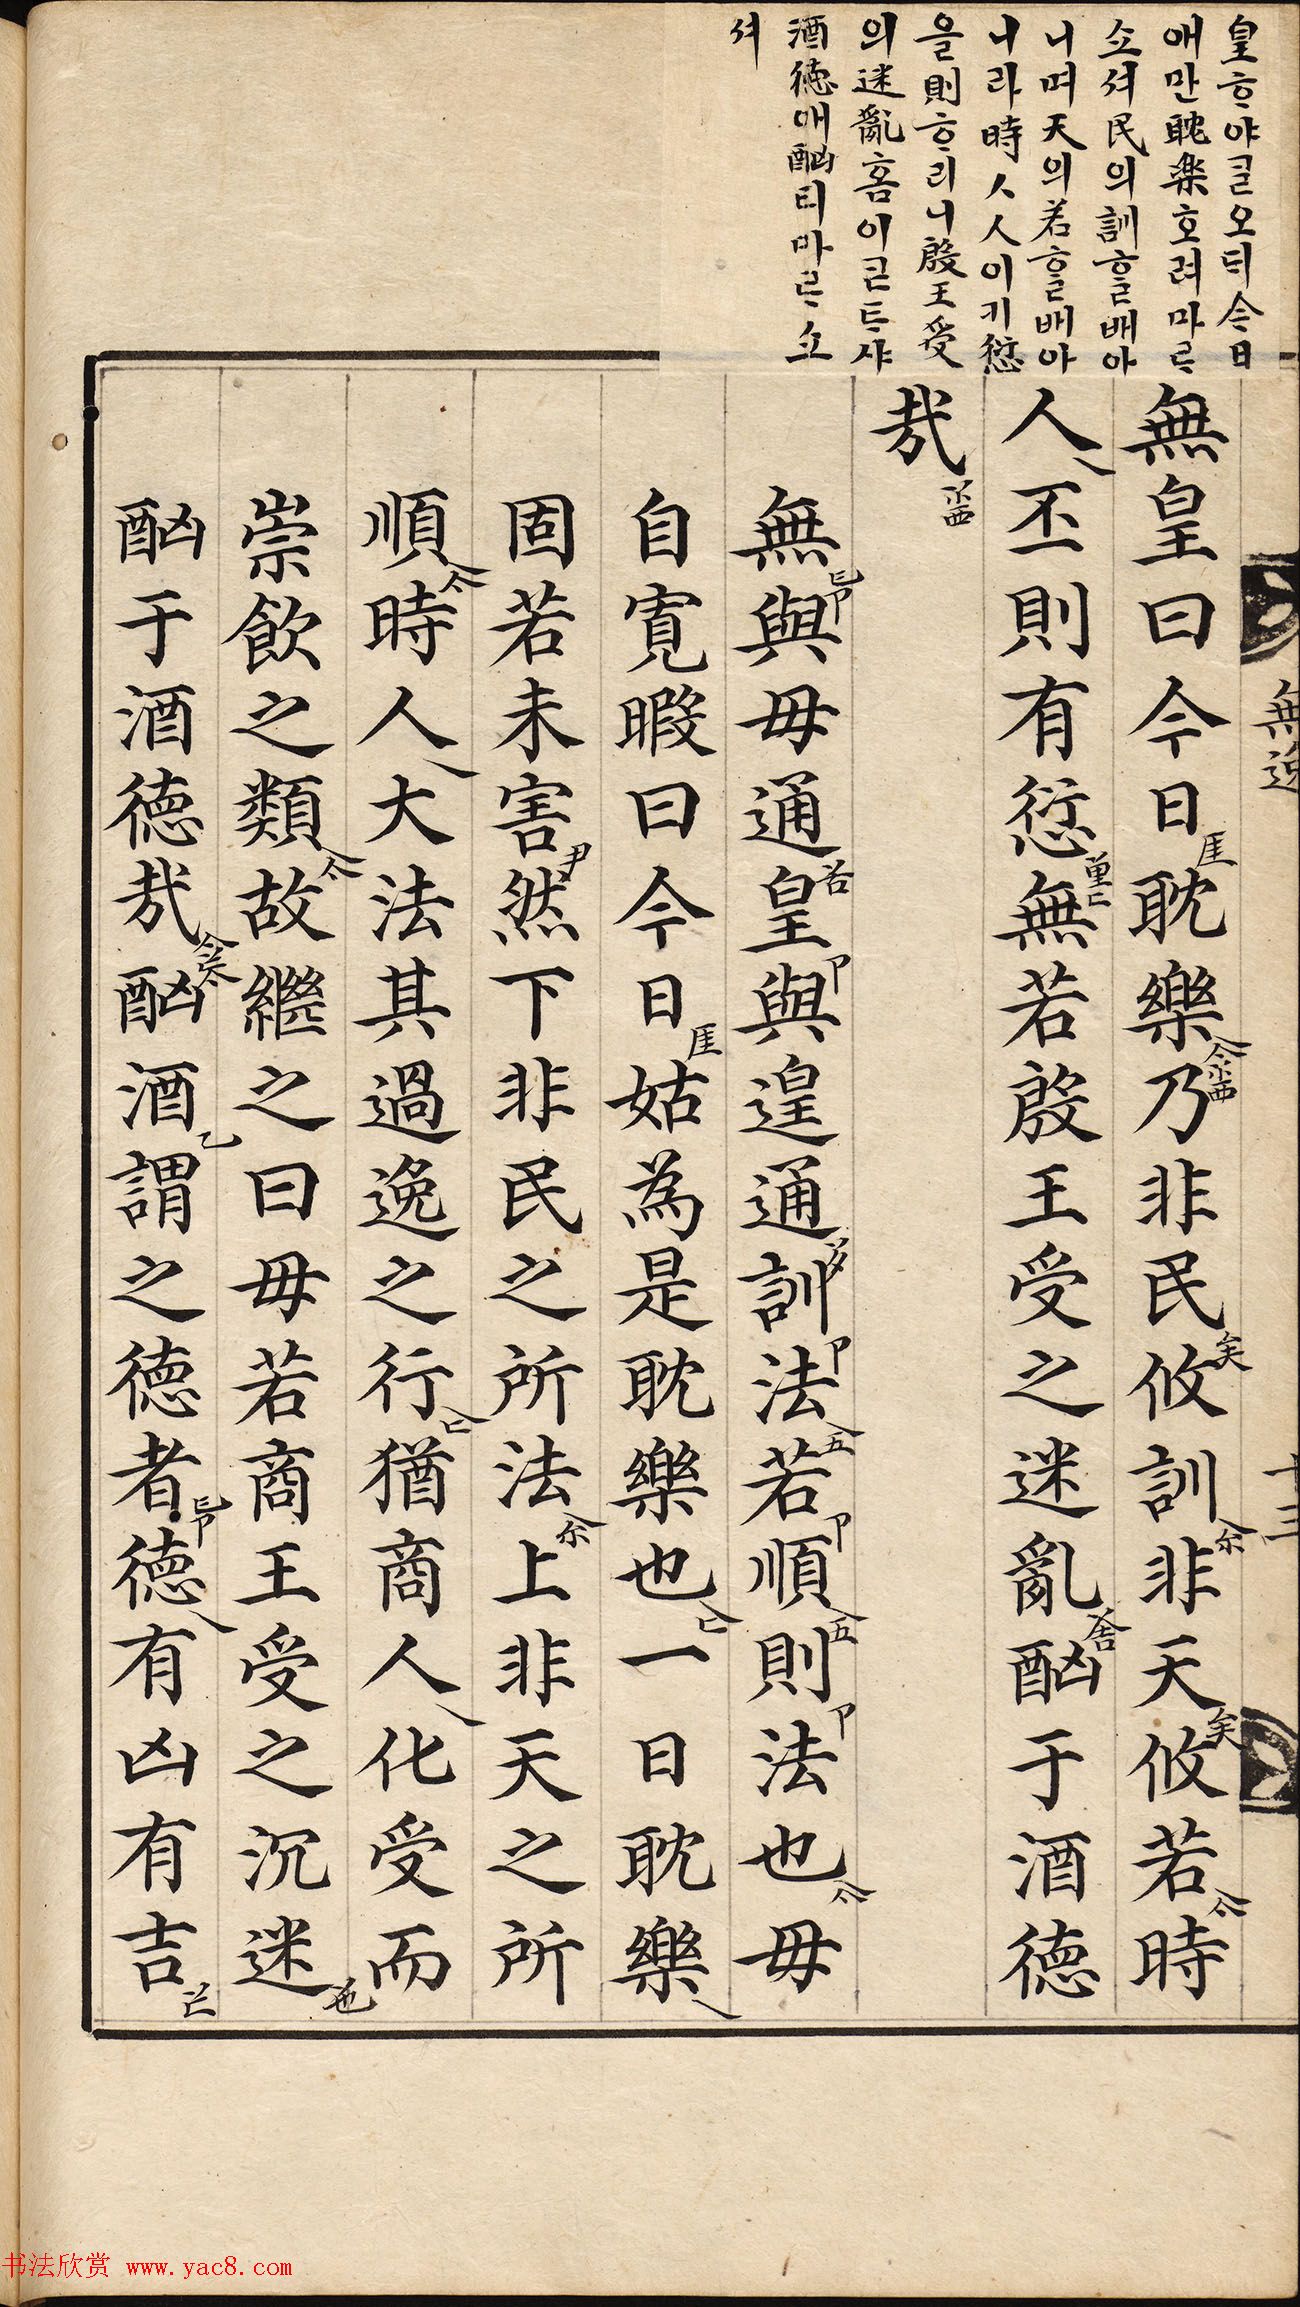 皇ᄒᆞ야ᄀᆞᆯ오ᄃᆡ今日
애만耽楽호려마ᄅᆞ
쇼셔民의訓ᄒᆞᆯ배아
니며天의若ᄒᆞᆯ배아
니라時人人이기愆
을則ᄒᆞ리니殷王受
의迷亂홈이ᄀᆞᆮᄐᆞ샤
酒徳애酗티마ᄅᆞ쇼
셔
無逸
十三
無皇曰今日耽樂乃非民攸訓非天攸若時
人丕則有愆無若殷王受之迷亂酗于酒徳
㢤
無與毋通皇與遑通訓法若順則法也毋
自寬暇曰今日姑為是耽樂也一日耽樂
固若未害然下非民之所法上非天之所
順時人大法其過逸之行猶商人化受而
崇飲之類故繼之曰毋若商王受之沉迷
酗于酒徳㢤酗酒謂之徳者徳有凶有吉
书法欣赏 www.yac8.com